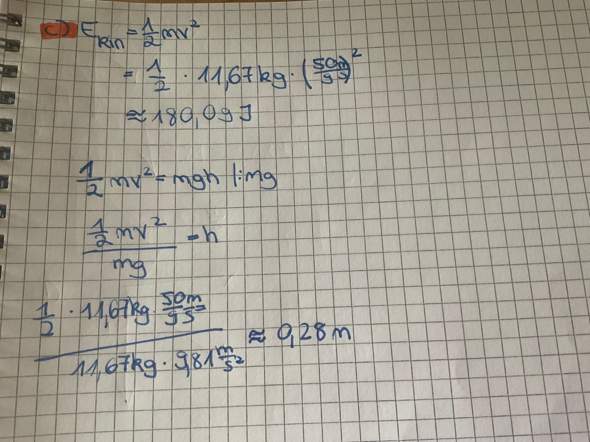 c) E_kin = 1/2 mv²
= 1/2 · 11,67kg · (50m/9s)²
≈ 180,09J
1/2 mv² = mgh |:mg
(1/2 mv²)/(mg) = h
(1/2 · 11,67kg 50m/9s)/(11,67kg · 9,81 m/s²) ≈ 0,28m